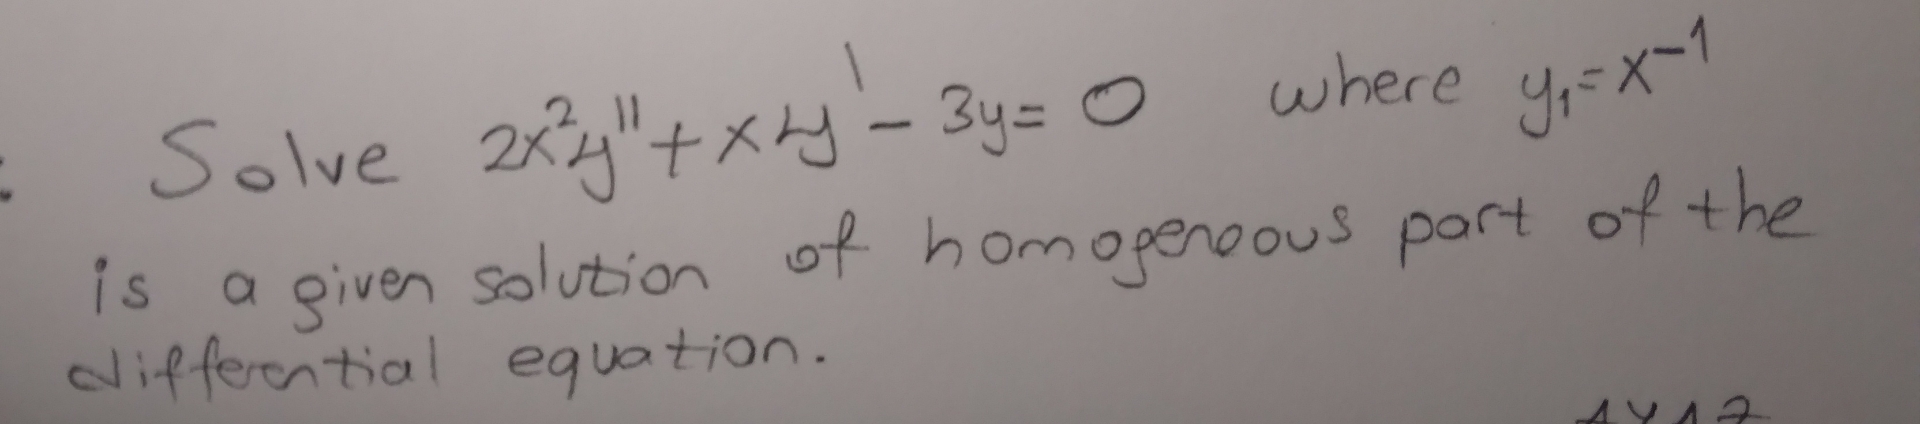 Solve 2x²y'' + xy' - 3y = 0 where y₁ = x⁻¹
is a given solution of homogeneous part of the
differential equation.